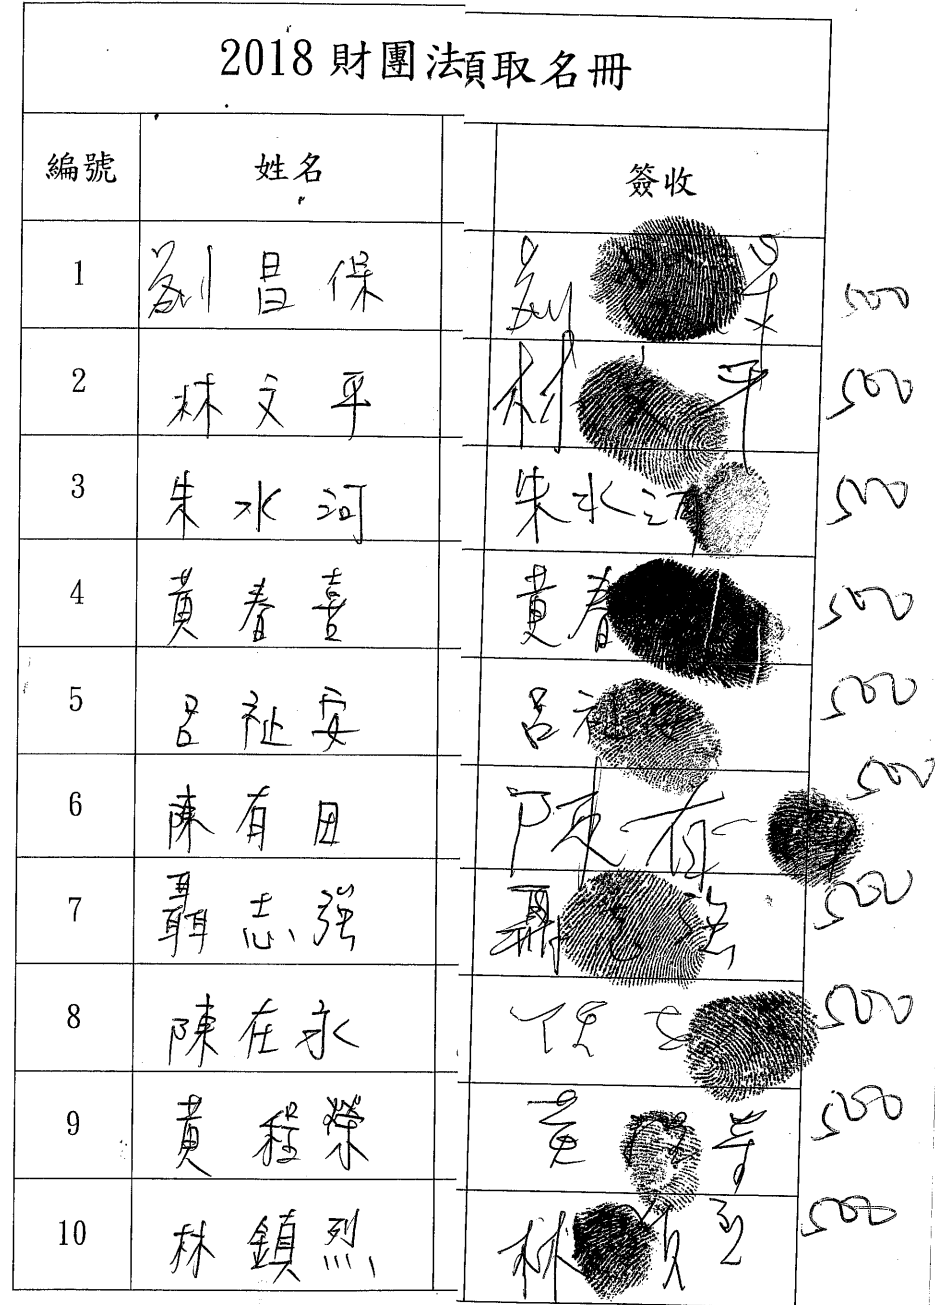 2018 財團法領取名冊
編號 姓名 簽收
1 劉昌保 劉 500
2 林文平 林文平 500
3 朱水河 朱水河 500
4 黃春喜 黃春 500
5 呂祉安 呂祉安 500
6 陳有田 陳有 500
7 聶志強 聶志強 500
8 陳在永 500
9 黃程榮 黃 500
10 林鎮烈 林 500